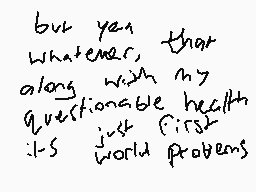 but yea
whatever, that
along with my
questionable health
its just first
world problems